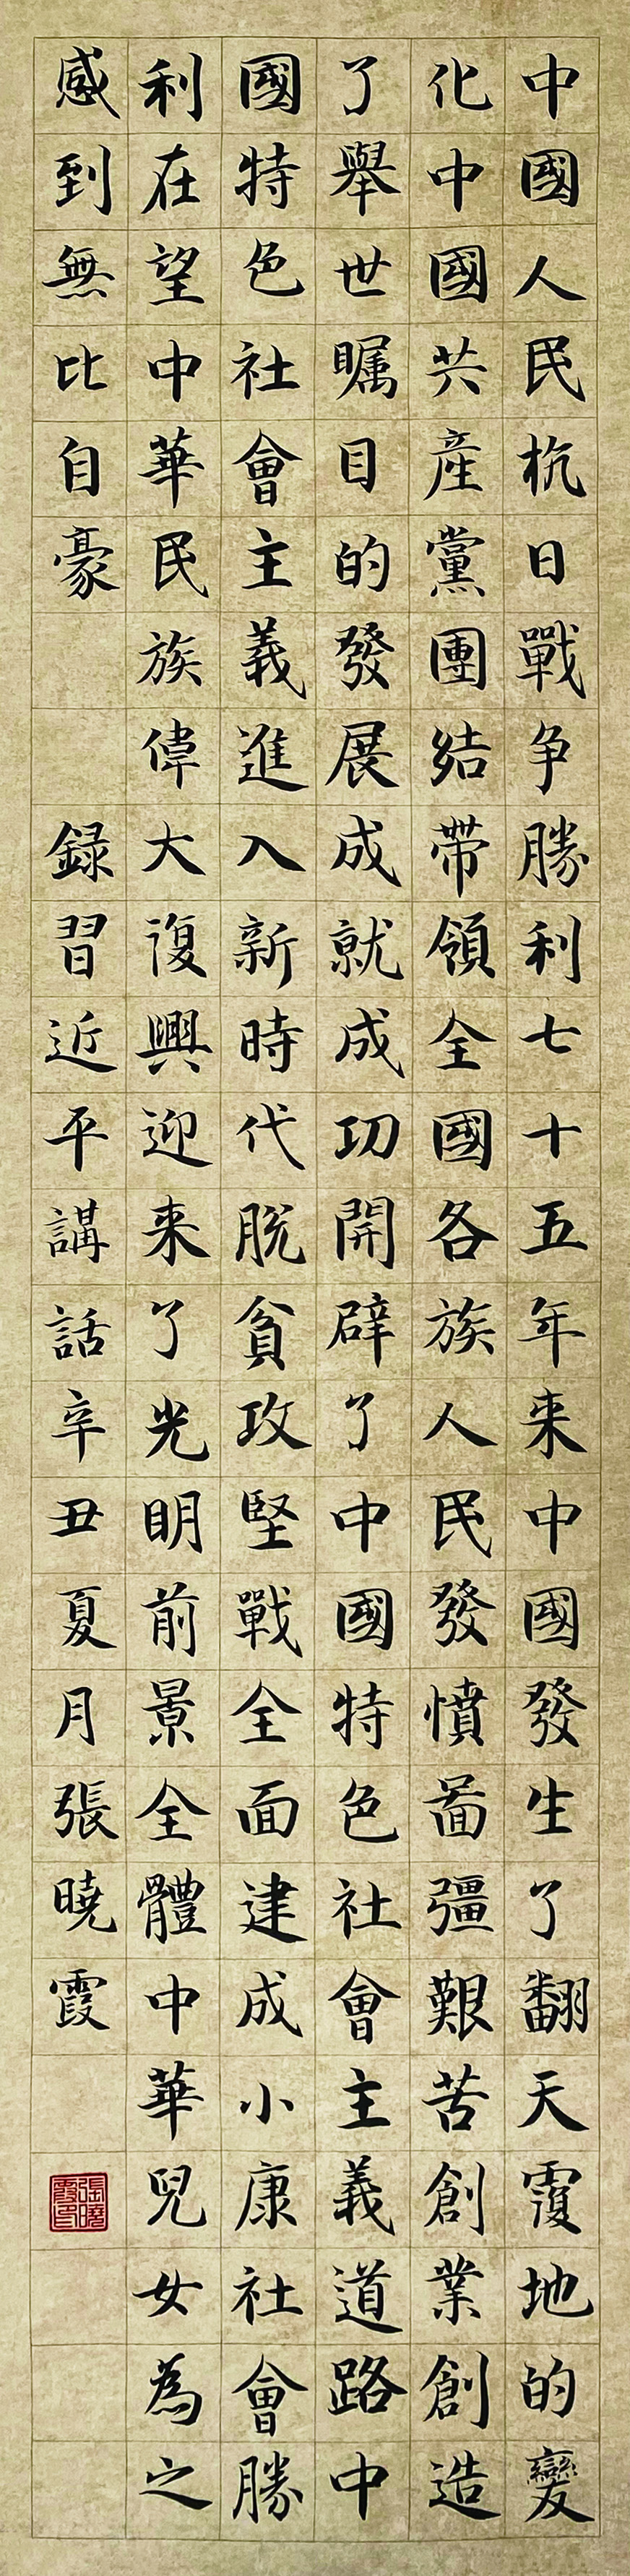 中國人民抗日戰争勝利七十五年来中國發生了翻天覆地的變
化中國共産黨團結帶領全國各族人民發憤啚彊艱苦創業創造
了舉世矚目的發展成就成功開辟了中國特色社會主義道路中
國特色社會主義進入新時代脱貧攻堅戰全面建成小康社會勝
利在望中華民族偉大復興迎来了光明前景全體中華兒女為之
感到無比自豪
録習近平講話辛丑夏月張曉霞
張曉霞印